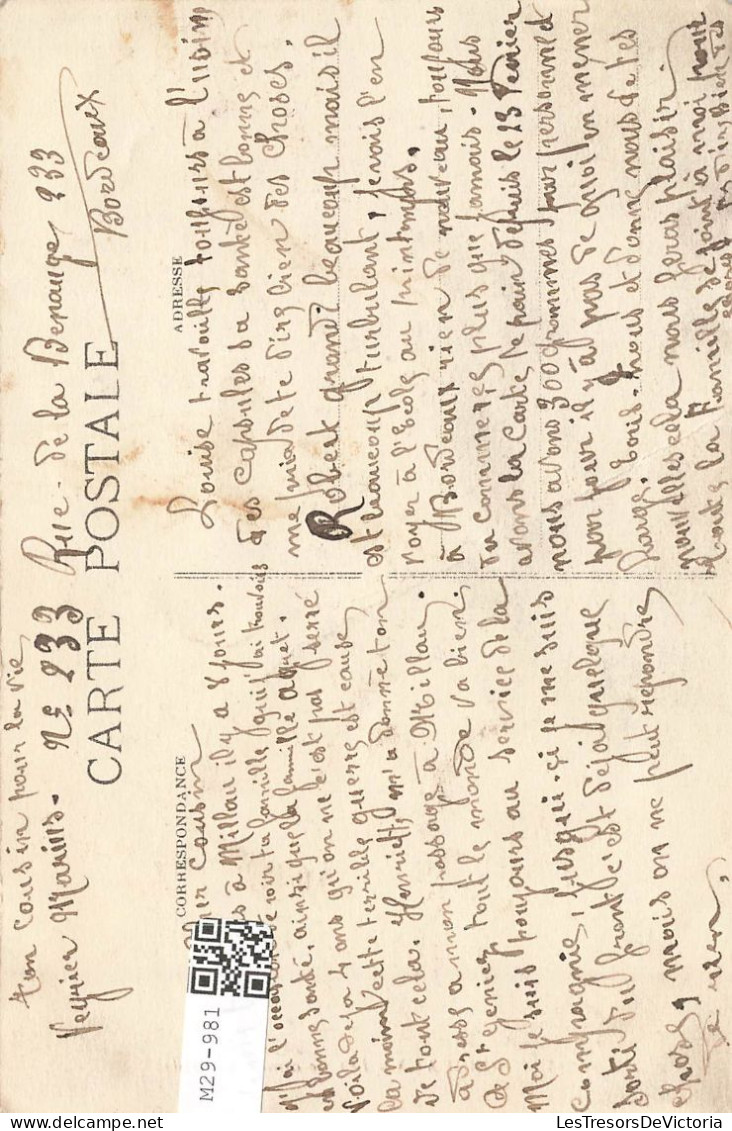 CARTE POSTALE
CORRESPONDANCE
ADRESSE
Cher Cousin
à Millau il y a 8 jours.
J'ai l'occasion de voir ta famille qui j'ai trouvais
en bonne santé, ainsi que la famille
Voila deja 4 ans qu'on ne c'est pas serré
la main cette terrible guerre est cause
de tout cela. Henriette m'a donné ton
adresse a mon passage à Millau.
a St Geniez tout le monde va bien.
Moi je suis toujours au service de la
Compagnie, jusqu'i-si je me suis
sorti du front c'est déjà quelque
chose, mais on ne peut répondre
de rien.
Louise travaille toujours à l'usine
des capsules sa Santé est bonne et
me de te dire bien des choses.
Robert grandi beaucoup mais il
est beaucoup turbulant, je vais l'en
voyer à l'école au printemps.
à Bordeaux rien de nouveau, toujours
du commerce plus que jamais. Nous
avons la Carte de pain depuis le 13 Février
nous avons 300 grammes par personne et
par jour il y à pas de quoi en mener
large. et donne nous de tes
nouvelles cela nous feras plaisir.
toute la famille se joint à moi pour
ton Cousin pour la vie
Veyrier Marius. No 233 Rue de la Benauge 233
Bordeaux
M29-981
LesTresorsDeVictoria